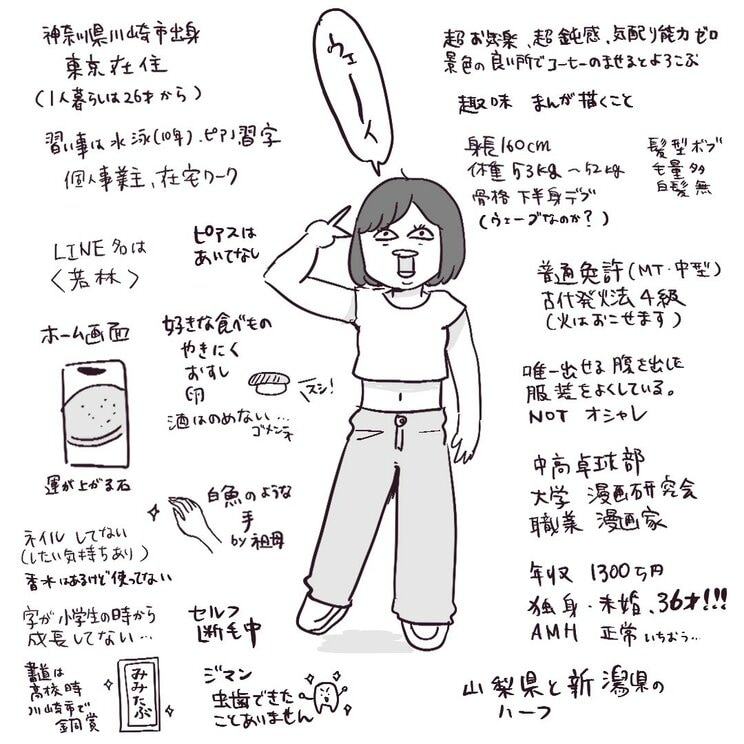 神奈川県川崎市出身
東京在住
(1人暮らしは26才から)
習い事は水泳(10年)、ピアノ習字
個人事業主、在宅ワーク
LINE名は
〈若林〉
ピアスは
あいてなし
ホーム画面
運が上がる石
好きな食べもの
やきにく
おすし
卵
スシ!
酒はのめない…
ゴメンネ
白魚のような
手
by祖母
ネイルしてない
(したい気持ちあり)
香水はあるけど使ってない
字が小学生の時から
成長してない…
セルフ
断毛中
書道は
高校時
川崎市で
銅賞
みみたぶ
ジマン
虫歯できた
ことありません
ウェーイ
超お気楽、超鈍感、気配り能力ゼロ
景色の良い所でコーヒーのませるとよろこぶ
趣味 まんが描くこと
身長160cm
体重53kg〜52kg
骨格 下半身デブ
(ウェーブなのか?)
髪型ボブ
毛量多
白髪無
普通免許(MT・中型)
古代発火法4級
(火はおこせます)
唯一出せる腹を出した
服装をよくしている。
NOT オシャレ
中高卓球部
大学 漫画研究会
職業 漫画家
年収 1300万円
独身・未婚、36才!!!
AMH 正常いちおう…
山梨県と新潟県の
ハーフ